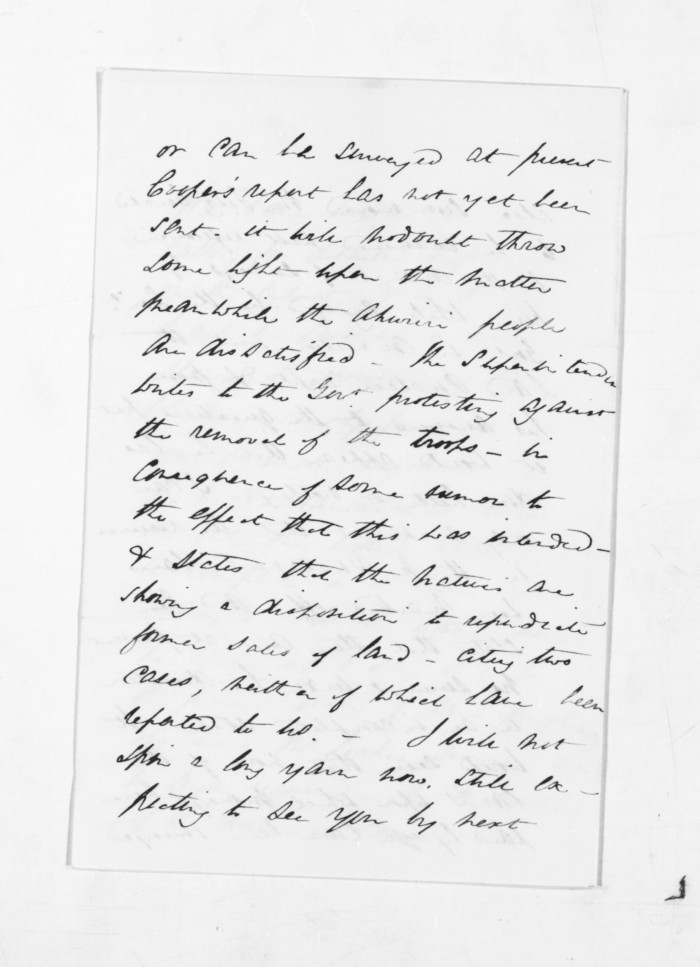 or can be surveyed at present
Cooper's report has not yet been
sent. it will no doubt throw
some light upon the matter
meanwhile the Ahuriri people
are dissatisfied - The Superintenden
writes to the Govt protesting against
the removal of the troops - in
consequence of some rumor to
the effect that this was intended -
& states that the natives are
showing a disposition to repudiate
former sales of land - citing two
cases, neither of which have been
reported to us. - I will not
spin a long yarn now. Still ex -
pecting to see you by next